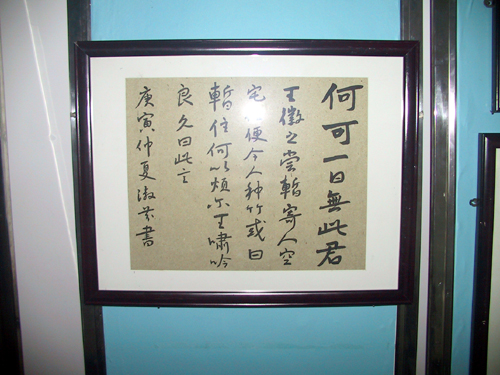 何可一日無此君
王徽之嘗暫寄人空
宅便令人种竹或曰
暫住何以烦尔王嘯吟
良久曰此言
庚寅仲夏淑芬書